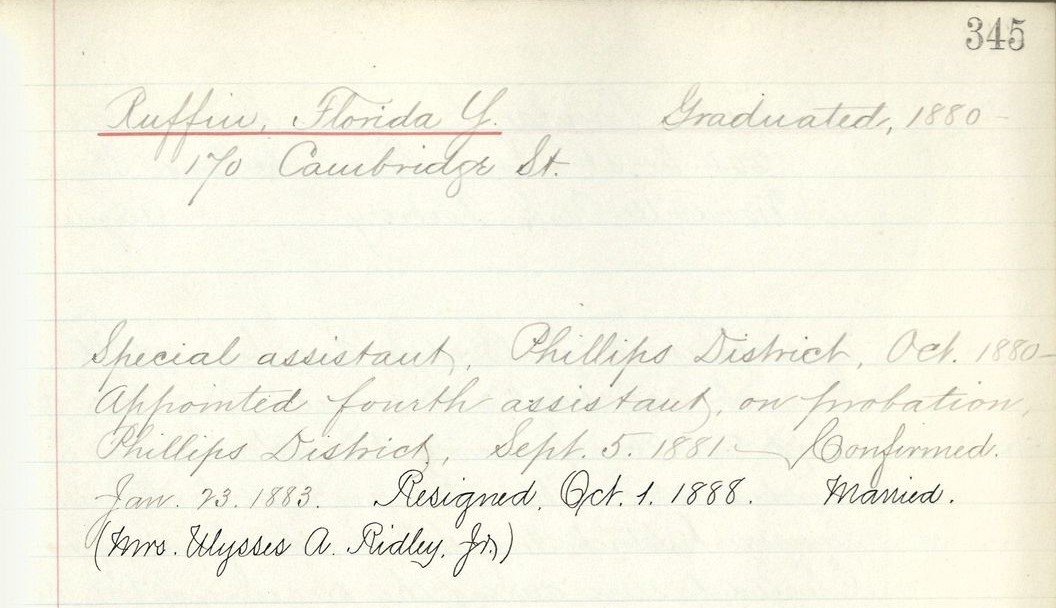 345
Ruffin, Florida Y. Graduated, 1880-
170 Cambridge St.
Special assistant, Phillips District, Oct. 1880-
Appointed fourth assistant, on probation,
Phillips District, Sept. 5. 1881- Confirmed.
Jan. 23. 1883. Resigned, Oct. 1. 1888. Married.
(Mrs. Ulysses A. Ridley, Jr.)